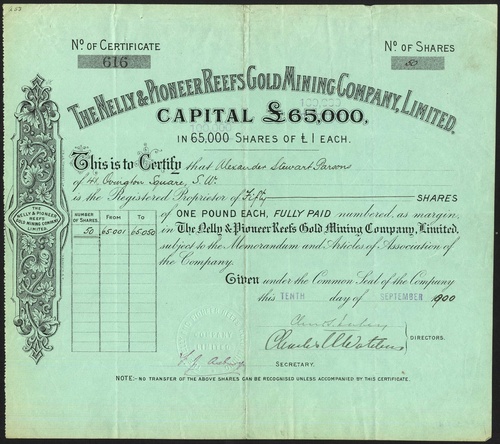 No. OF CERTIFICATE
616
No. OF SHARES
50
THE NELLY & PIONEER REEFS GOLD MINING COMPANY, LIMITED.
CAPITAL £65,000,
IN 65,000 SHARES OF £1 EACH.
This is to Certify that Alexander Stewart Parsons
of 41, Ovington Square, S.W.
is the Registered Proprietor of Fifty SHARES
of ONE POUND EACH, FULLY PAID numbered, as margin,
in The Nelly & Pioneer Reefs Gold Mining Company, Limited,
subject to the Memorandum and Articles of Association of
the Company.
THE
NELLY & PIONEER
REEFS
GOLD MINING COMPANY
LIMITED.
NUMBER OF SHARES. FROM TO
50 65001 65050
Given under the Common Seal of the Company
this TENTH day of SEPTEMBER 1900
DIRECTORS.
SECRETARY.
NOTE:- NO TRANSFER OF THE ABOVE SHARES CAN BE RECOGNISED UNLESS ACCOMPANIED BY THIS CERTIFICATE.